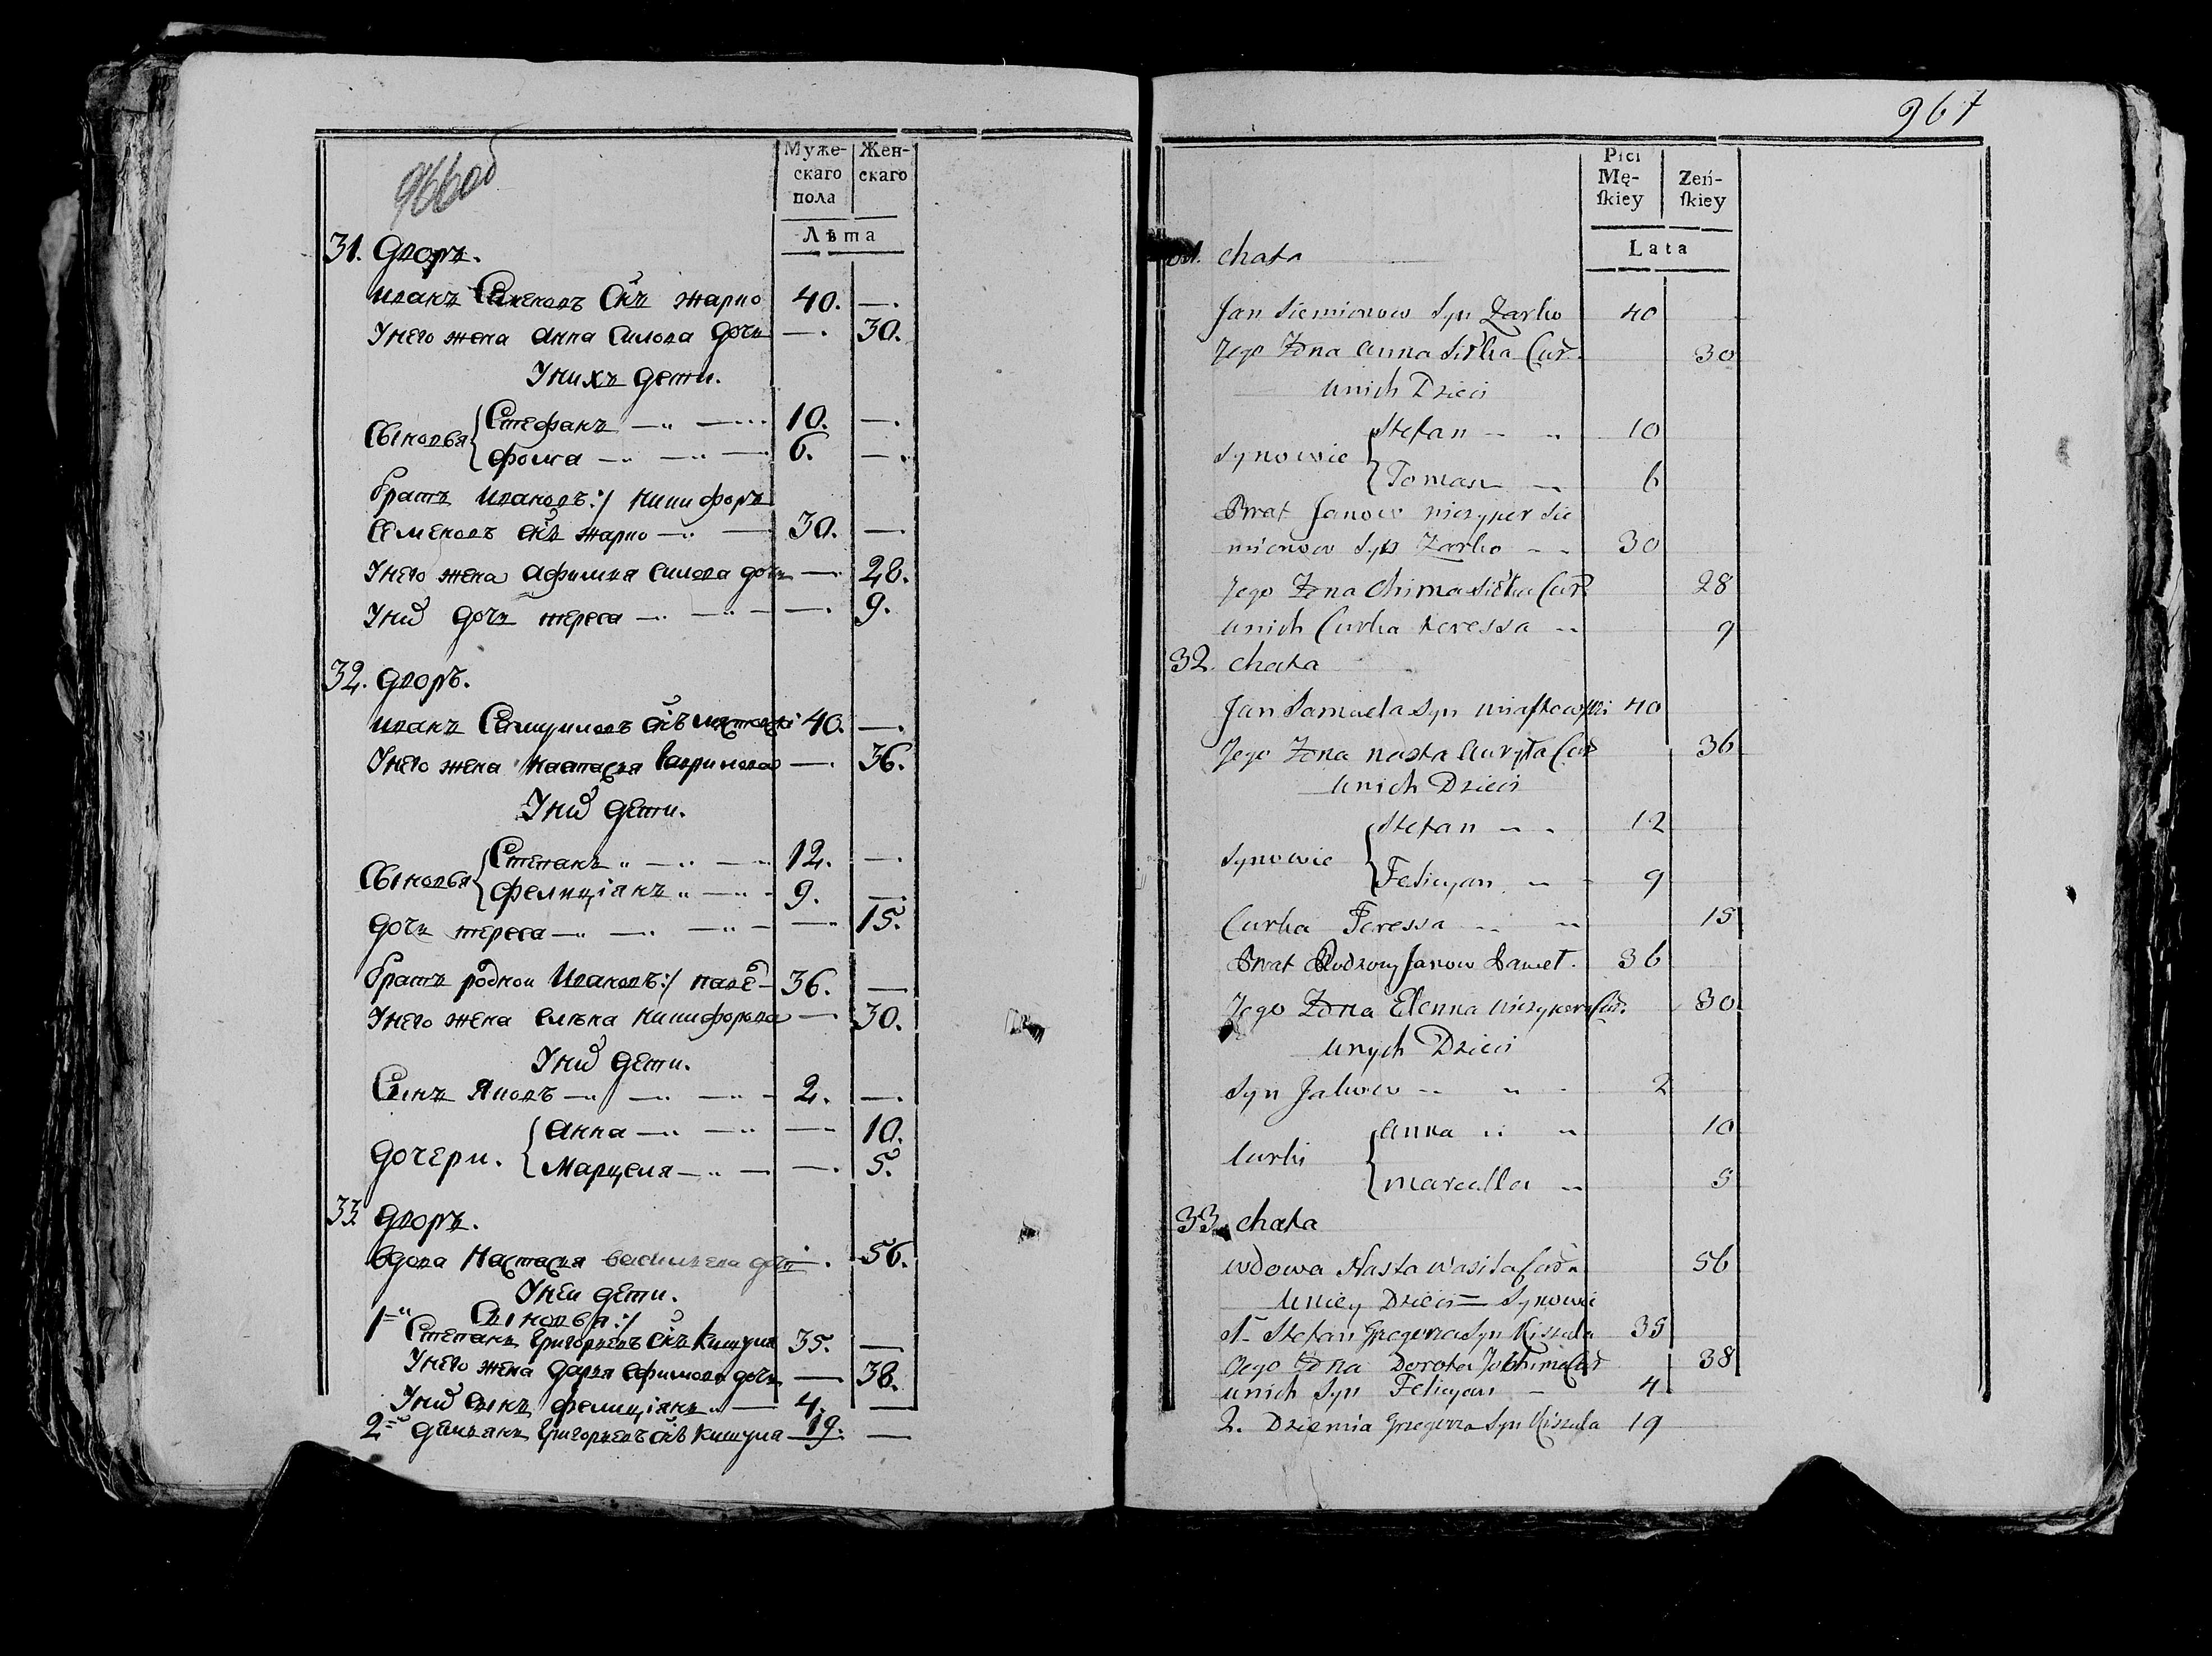 966об
Муже-
скаго
пола
Жен-
скаго
Лѣта
31. Дворъ.
Иванъ Семеновъ Снъ Жарко 40. —.
У него жена Анна Силова дочь —. 30.
У нихъ дети.
Сыновья { Стефанъ 10. —.
Фома 6. —.
Братъ Ивановъ:/ Никифоръ
Семеновъ снъ Жарко 30. —.
У него жена Афимка Силова дочь —. 28.
У них дочь Тереса —. 9.
32. Дворъ.
Иванъ Самуиловъ снъ 40. —.
У него жена Настасья Гаврилова —. 36.
У них дети.
Сыновья { Степанъ 12. —.
Фелиціанъ 9. —.
Дочь Тереса —. 15.
Братъ родной Ивановъ:/ 36. —
У него жена Елена Никифорова — 30.
У них дети.
Сынъ Яковъ 2. —.
Дочери. { Анна — 10.
Марцеля —. 5.
33 Дворъ.
Вдова Настасья Васильева дочь —. 56.
У неи дети.
Сыновья:/
1-и Степанъ Григорьевъ снъ Кишула 35. —
У него жена Дарья Ефимова дочь — 38.
У них сынъ Фелиціянъ 4. —
2-и Демьянъ Григорьевъ снъ Кишула 19. —
967
Płci
Mę-
ſkiey
Zeń-
ſkiey
Lata
31. chata
Jan Siemionow Syn Zarko 40
Jego Zona Anna Siłka Cur. 30
Unich Dzieci
Synowie { Stefan 10
Tomasz 6
Brat Janow Niczyper Sie
mionow Syn Zarko 30
Jego Zona Chima Siłka Cur. 28
Unich Curka Teressa 9
32. chata
Jan Samuela Syn 40
Jego Zona Nasta Cur 36
Unich Dzieci
Synowie { Stefan 12
Felicyan 9
Curka Teressa 15
Brat Rodzony Janow Paweł. 36
Jego Zona Elenna Niczypera Cur. 30
Unych Dzieci
Syn Jakow 2
Curki { Anna 10
Marcella 5
33. chata
Wdowa Nasta Wasila Cur. 56
Uniey Dzieci = Synowie
1. Stefan Gregorza Syn Kiszula 35
Jego Zona Dorota Jochima Cur 38
Unich Syn Felicyan 4
2. Dziemia Grzegorza Syn Kiszula 19